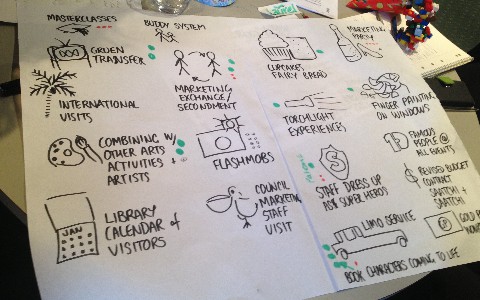 MASTERCLASSES
GRUEN
TRANSFER
INTERNATIONAL
VISITS
COMBINING W/
OTHER ARTS
ACTIVITIES +
ARTISTS
JAN
LIBRARY
CALENDAR of
VISITORS
BUDDY SYSTEM
MARKETING
EXCHANGE/
SECONDMENT
FLASHMOBS
COUNCIL
MARKETING
STAFF
VISIT
CUPCAKES
FAIRY BREAD
TORCHLIGHT
EXPERIENCES
S
STAFF DRESS UP
AS A SUPER HERO
LIMO SERVICE
BOOK CHARACTERS COMING TO LIFE
MARKETING
PARTY
FINGER PAINTING
ON WINDOWS
FAMOUS
PEOPLE @
ALL EVENTS
$ REVISED BUDGET
CONTRACT
SAATCHI +
SAATCHI
GOLD